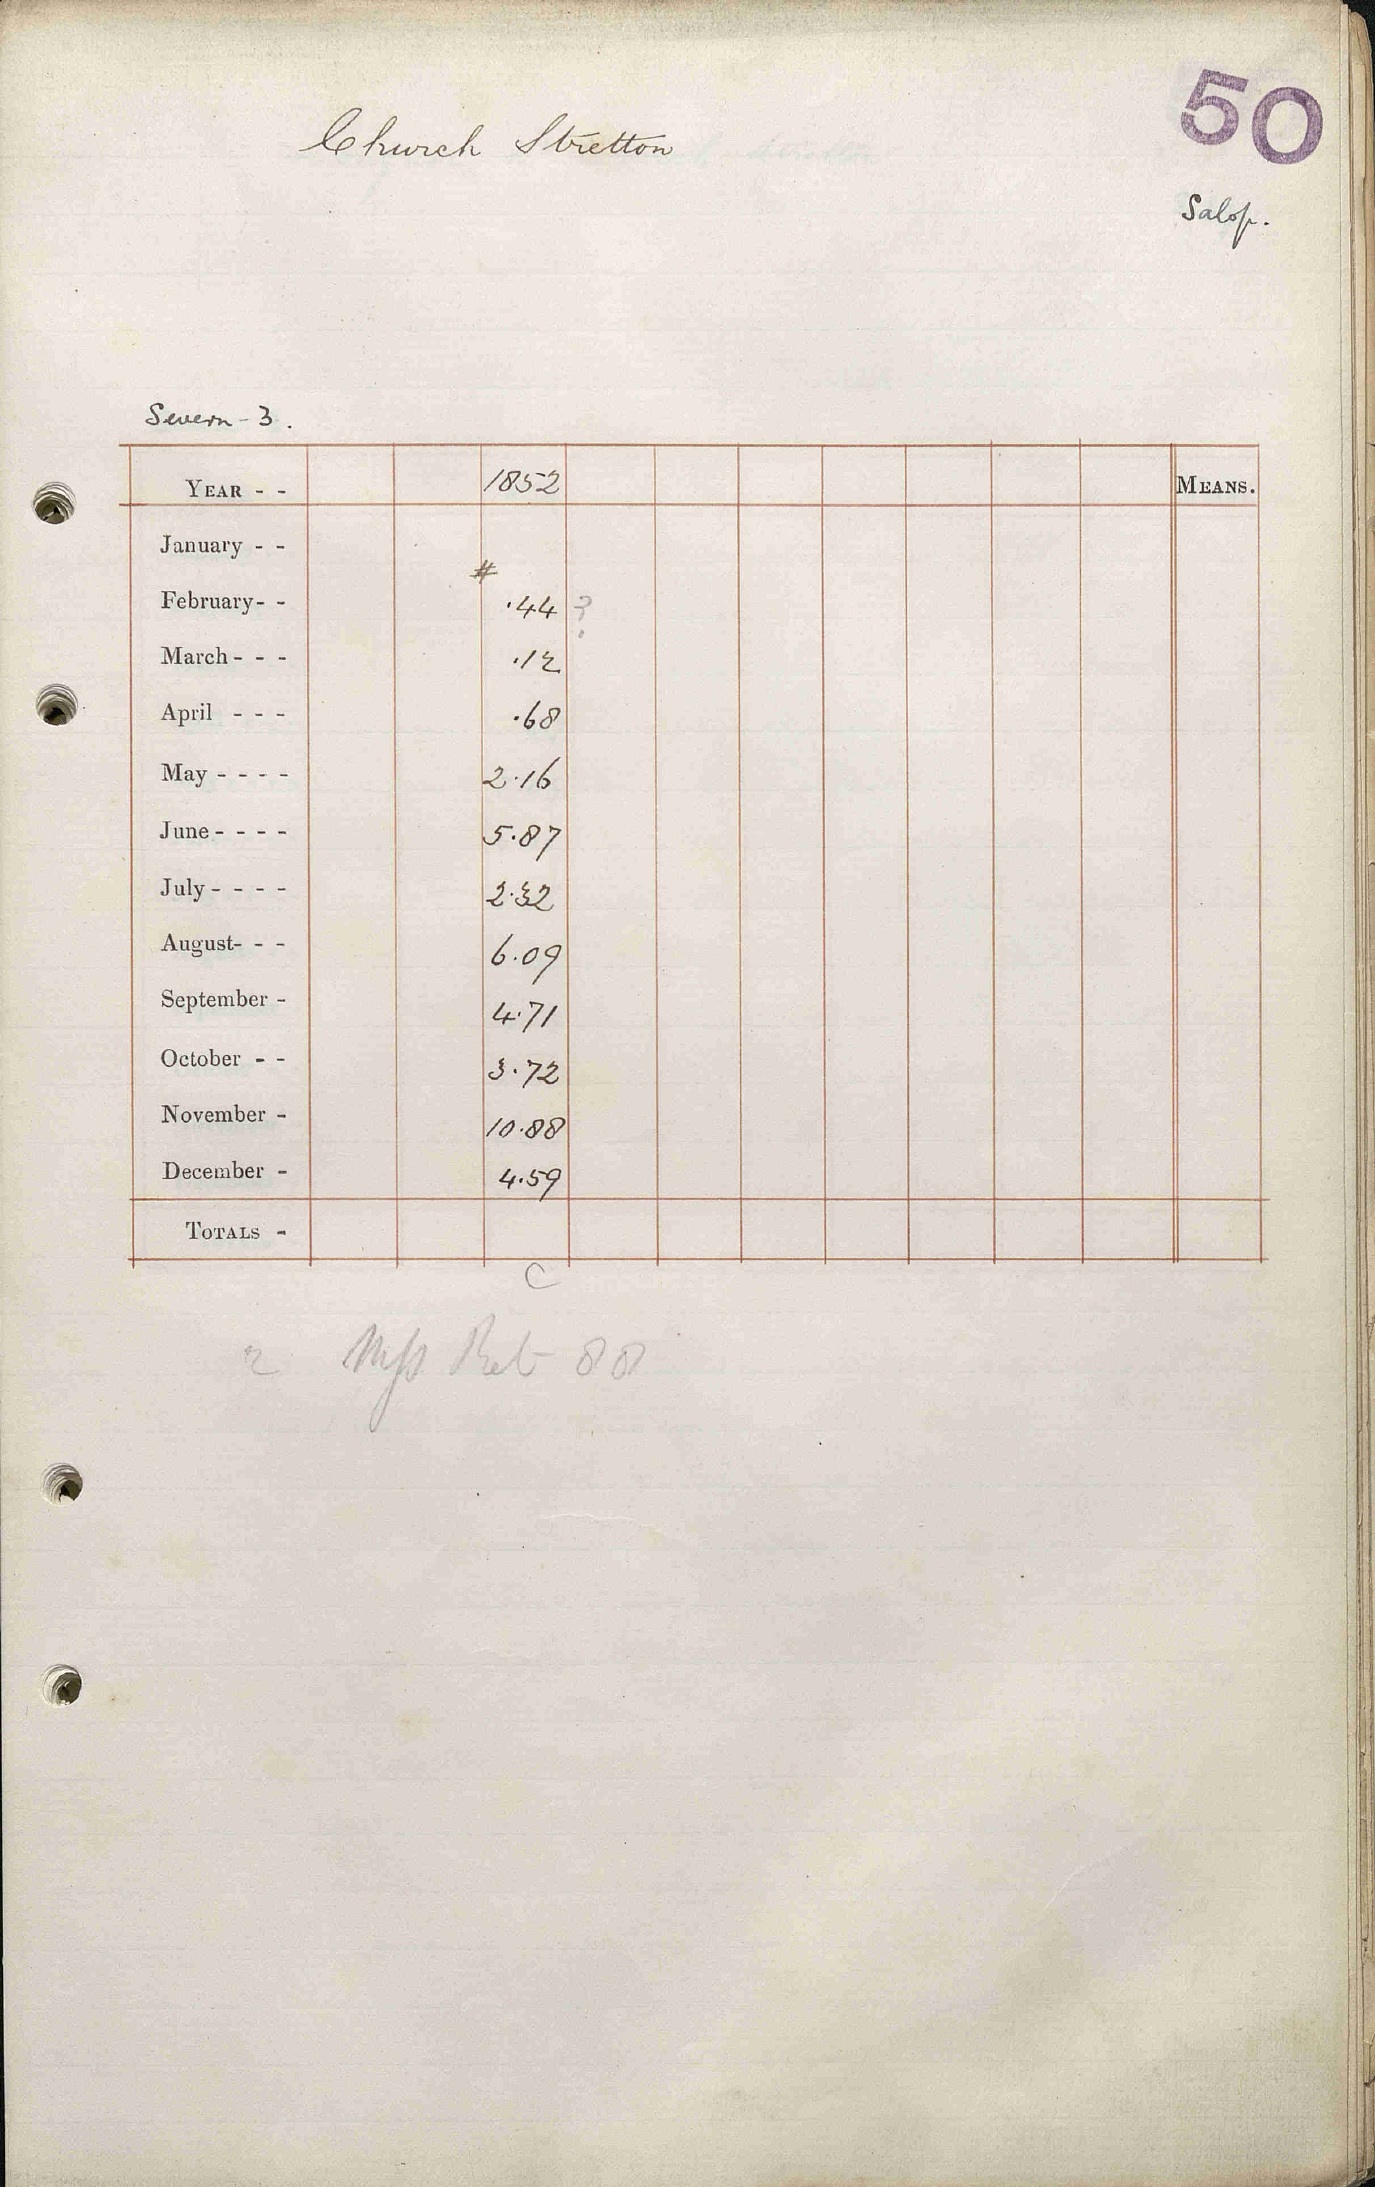 50
Church Stretton
Salop.
Severn - 3.
YEAR - - 1852 MEANS.
January - -
#
February - - .44 ?
March - - - .12
April - - - .68
May - - - - 2.16
June - - - - 5.87
July - - - - 2.32
August - - - 6.09
September - 4.71
October - - 3.72
November - 10.88
December - 4.59
TOTALS -
C
88